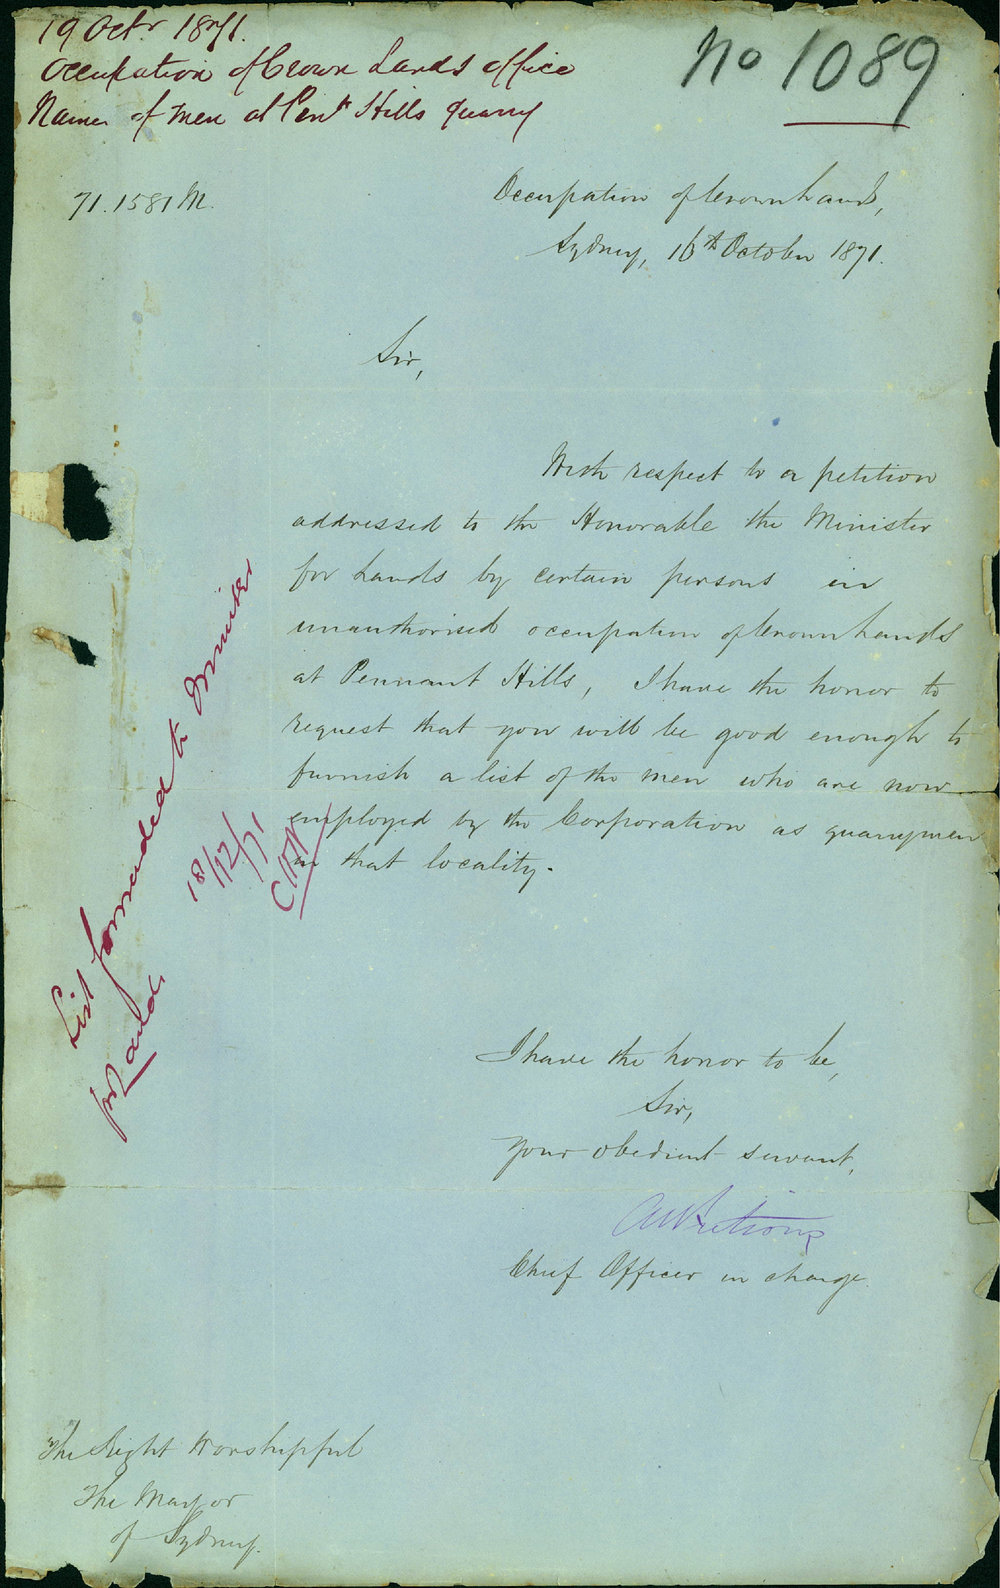 19 Octr 1871.
Occupation of Crown Lands office
Names of men at Pent Hills quarry
No 1089
71.1581 M.
Occupation of Crown Lands,
Sydney, 16th October 1871.
Sir,
With respect to a petition
addressed to the Honorable the Minister
for Lands by certain persons in
unauthorised occupation of Crown Lands
at Pennant Hills, I have the honor to
request that you will be good enough to
furnish a list of the men who are now
employed by the Corporation as quarrymen
in that locality.
List forwarded to Minister
for Lands
18/12/71
I have the honor to be,
Sir,
Your obedient servant,
Chief Officer in charge.
The Right Worshipful
The Mayor
of Sydney.